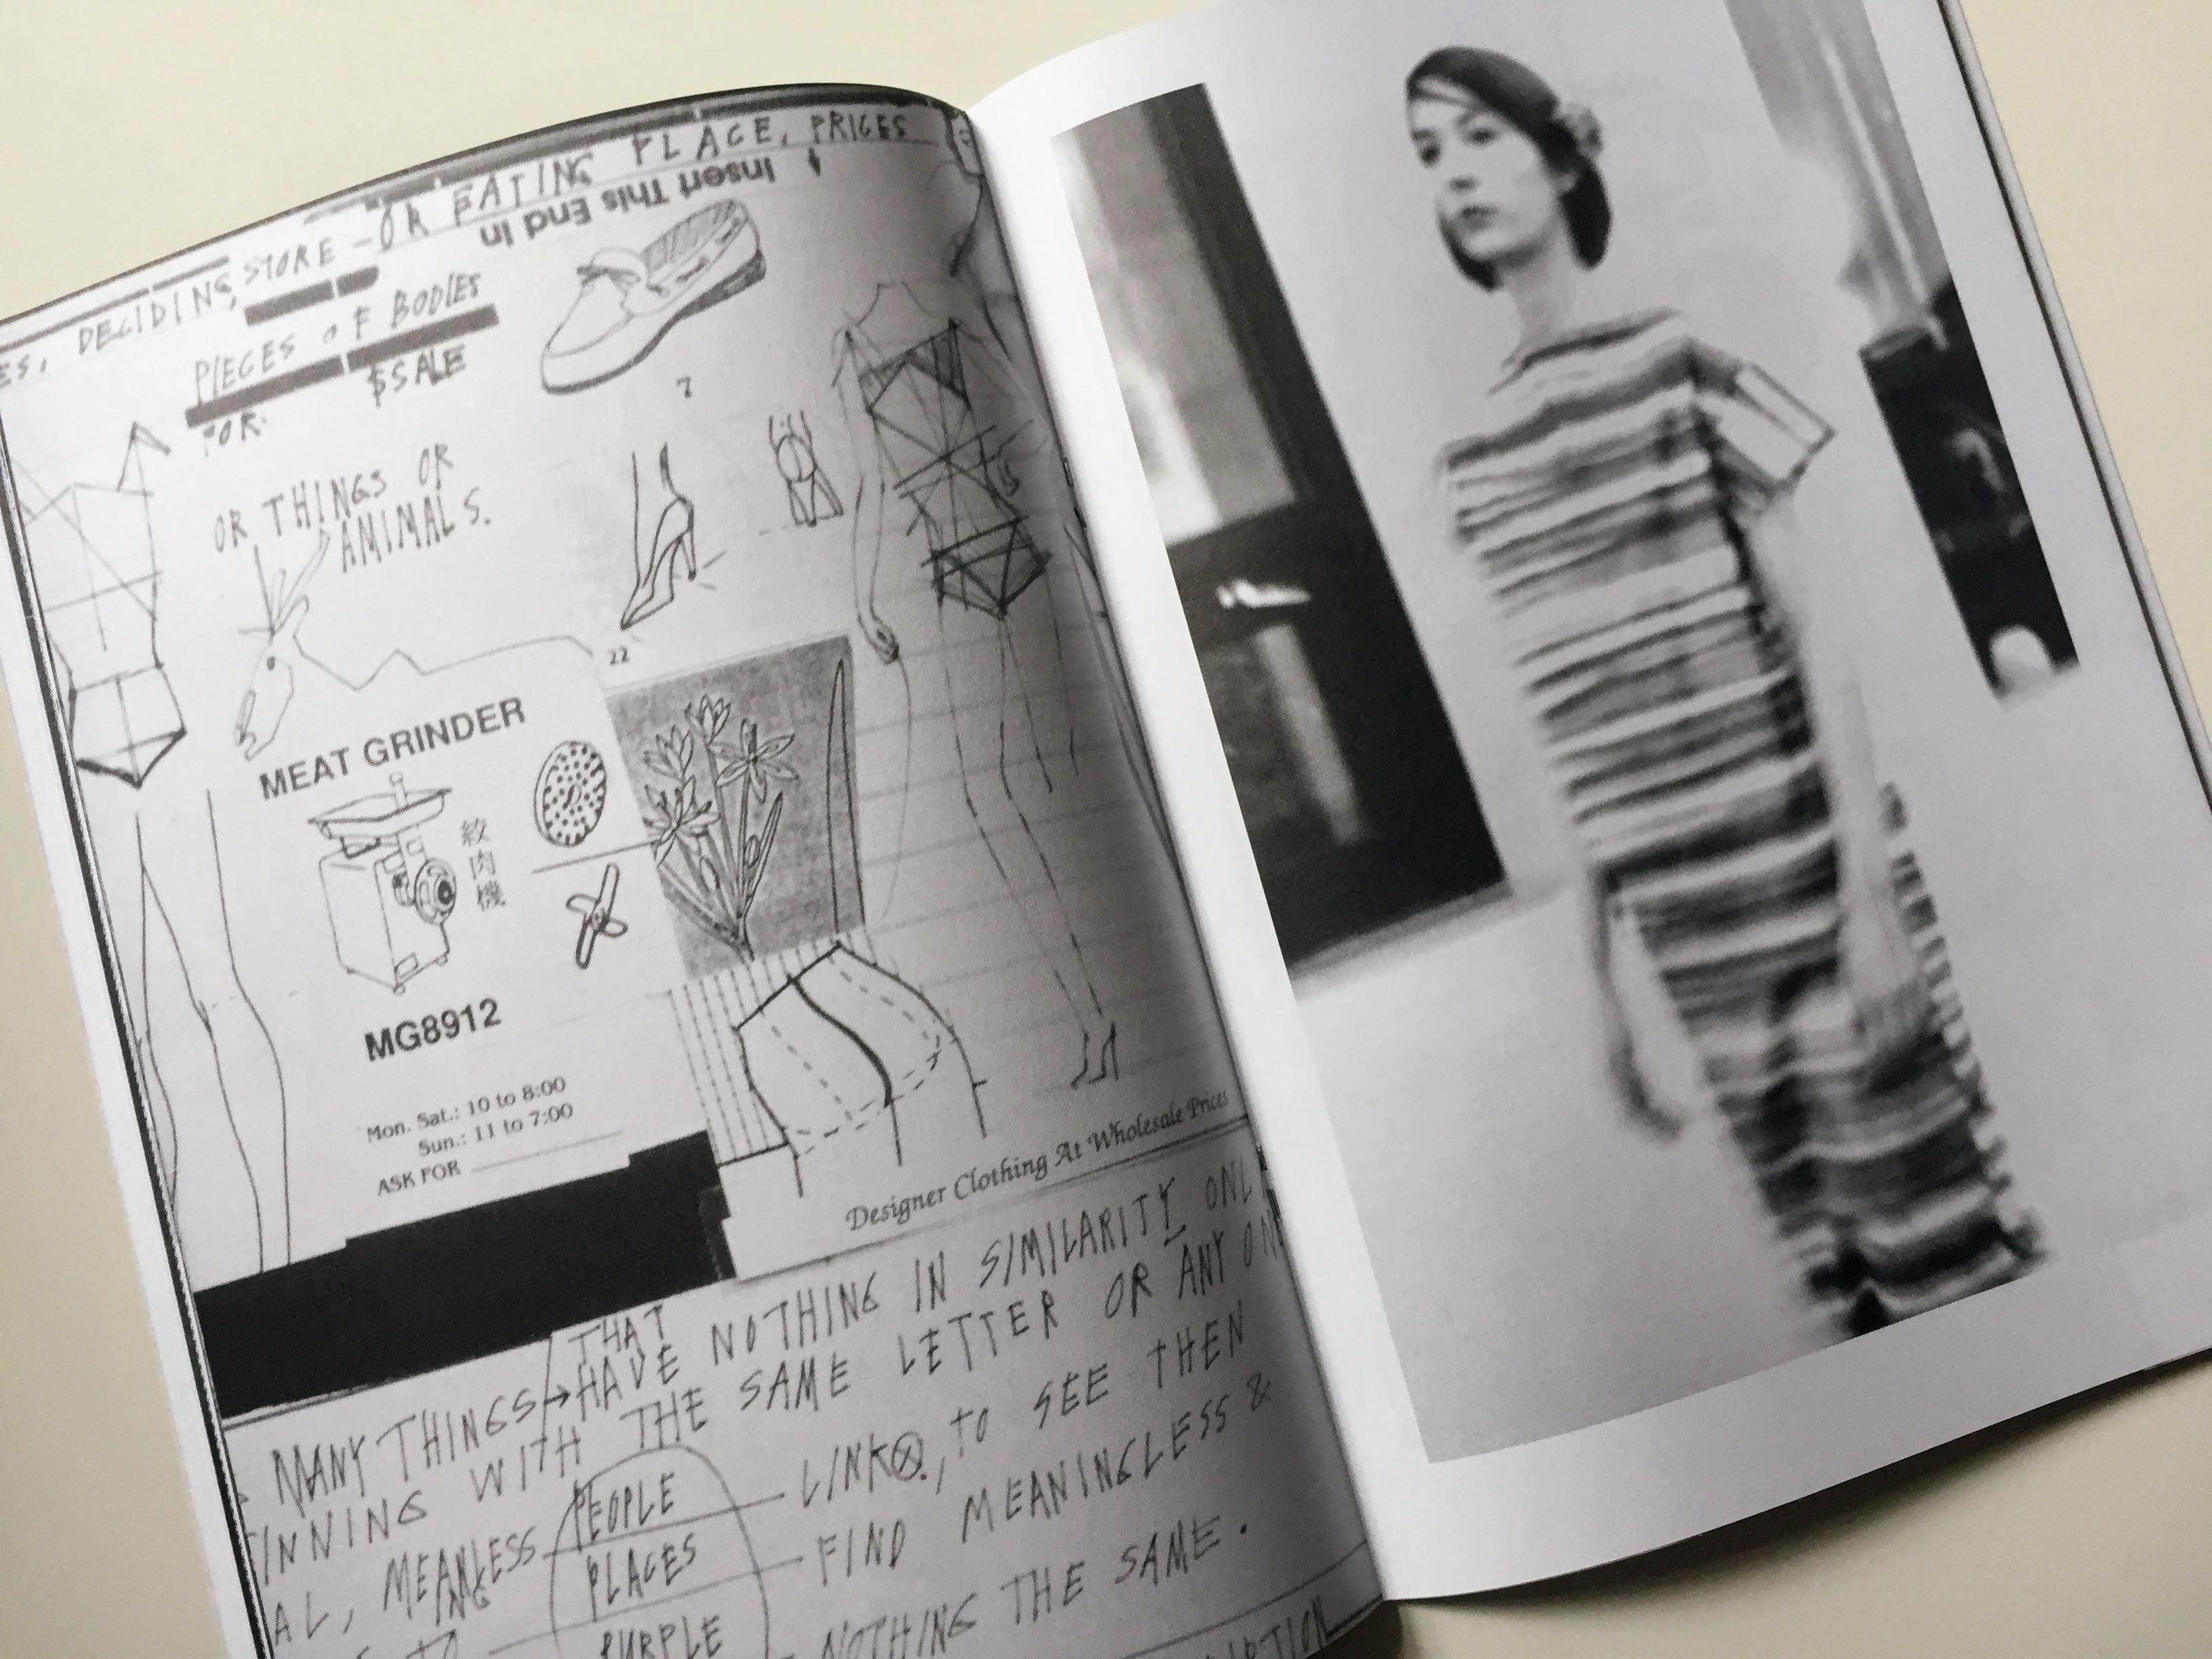 ES, DECIDING, STORE - OR EATING PLACE, PRICES
Insert This End In
PIECES OF BODIES
FOR: $SALE
OR THINGS OR
ANIMALS.
7
22
MEAT GRINDER
絞肉機
MG8912
Mon. Sat.: 10 to 8:00
Sun.: 11 to 7:00
ASK FOR
Designer Clothing At Wholesale Prices
THAT
MANY THINGS → HAVE NOTHING IN SIMILARITY ONL
INNING WITH THE SAME LETTER OR ANY ON
AL, MEANLESS PEOPLE LINK, TO SEE THEN
ING PLACES FIND MEANINGLESS &
TO PURPLE NOTHING THE SAME.
IPTION